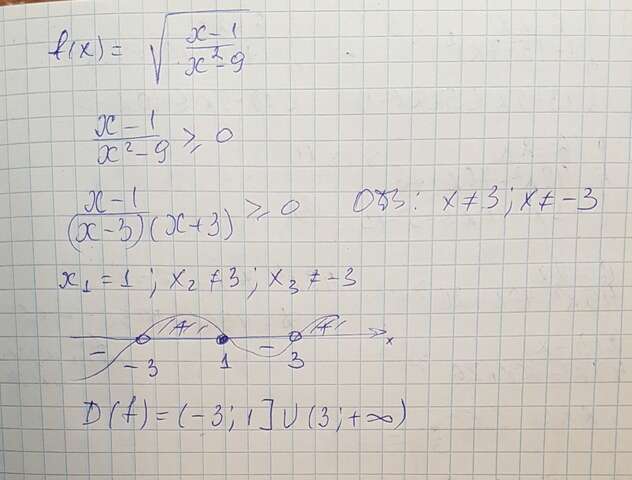 f(x) = √((x-1)/(x²-9))
(x-1)/(x²-9) ≥ 0
(x-1)/((x-3)(x+3)) ≥ 0 ОДЗ: x≠3; x≠-3
x₁ = 1; x₂ ≠ 3; x₃ ≠ -3
- + - + x
-3 1 3
D(f) = (-3; 1] ∪ (3; +∞)